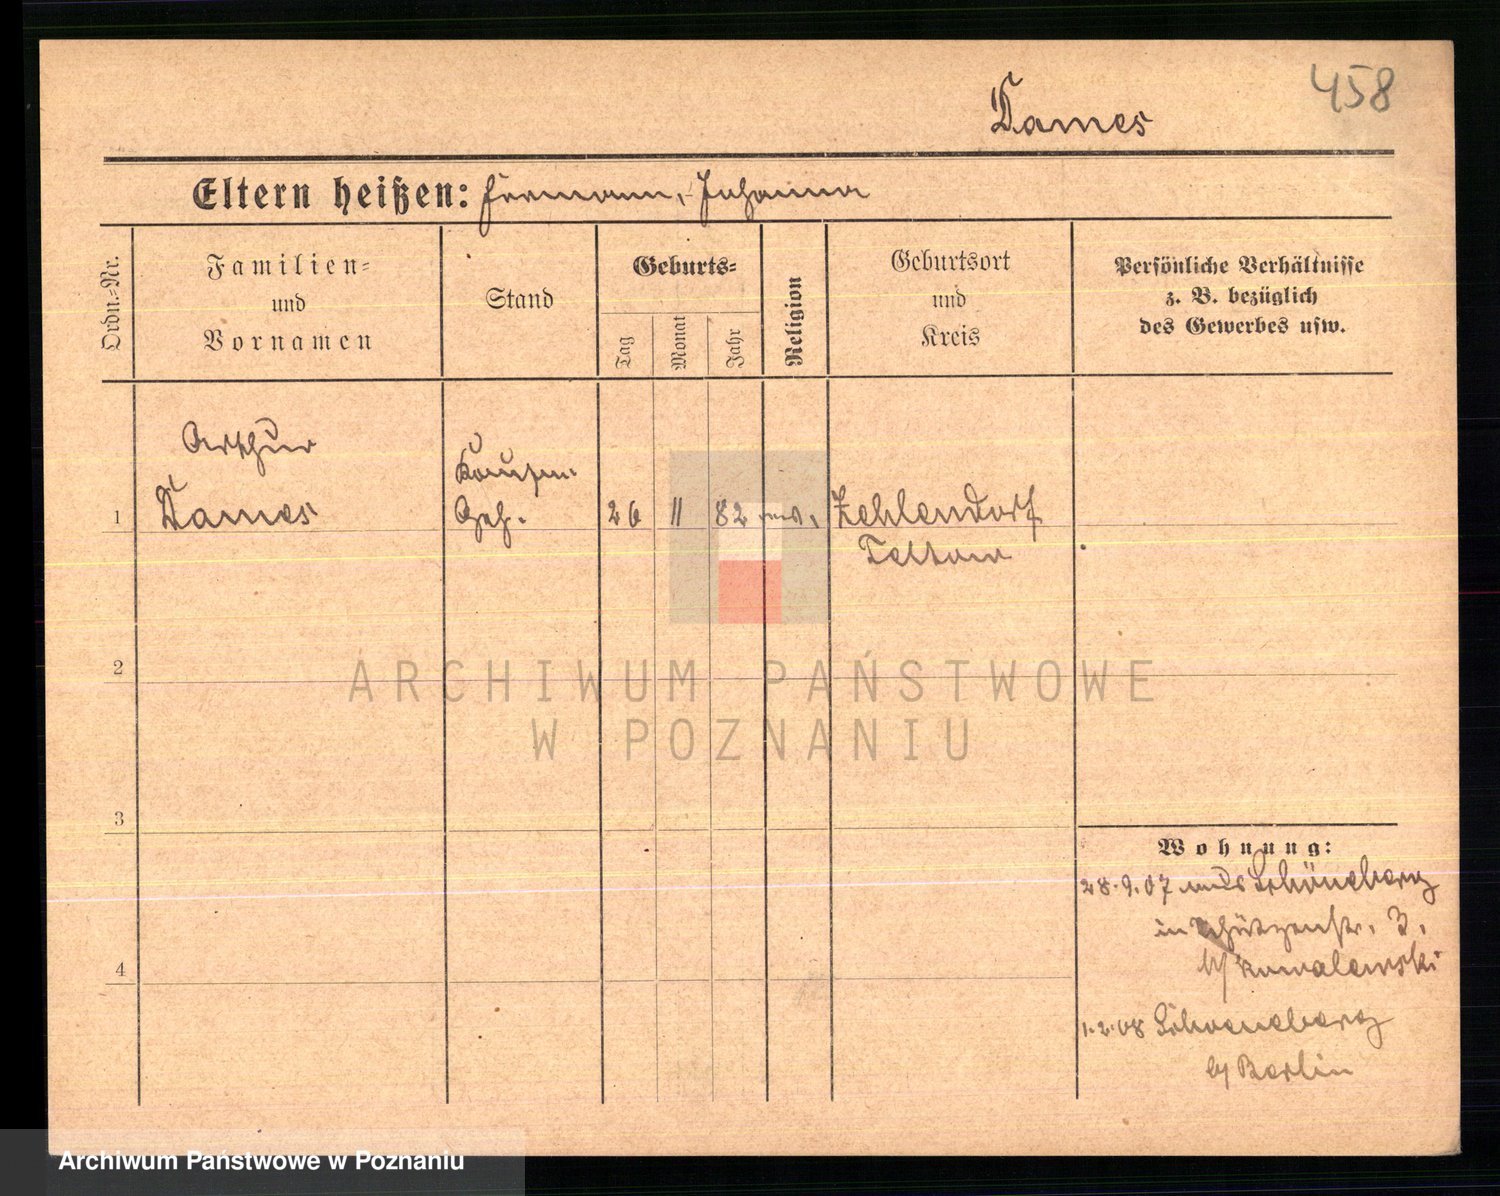 458
Dames
Eltern heißen: Hermann, Johanna
Ordn.-Nr.
Familien-
und
Vornamen
Stand
Geburts-
Tag
Monat
Jahr
Religion
Geburtsort
und
Kreis
Persönliche Verhältnisse
z. B. bezüglich
des Gewerbes usw.
1
Arthur
Dames
Kaufm.
Geh.
26
11
82
Zehlendorf
Teltow
2
3
4
Wohnung:
28.9.07 aus Schöneberg
in Schützenstr. 3.
b/ Kowalewski
1.2.08 Schoeneberg
b/ Berlin
ARCHIWUM PAŃSTWOWE
W POZNANIU
Archiwum Państwowe w Poznaniu